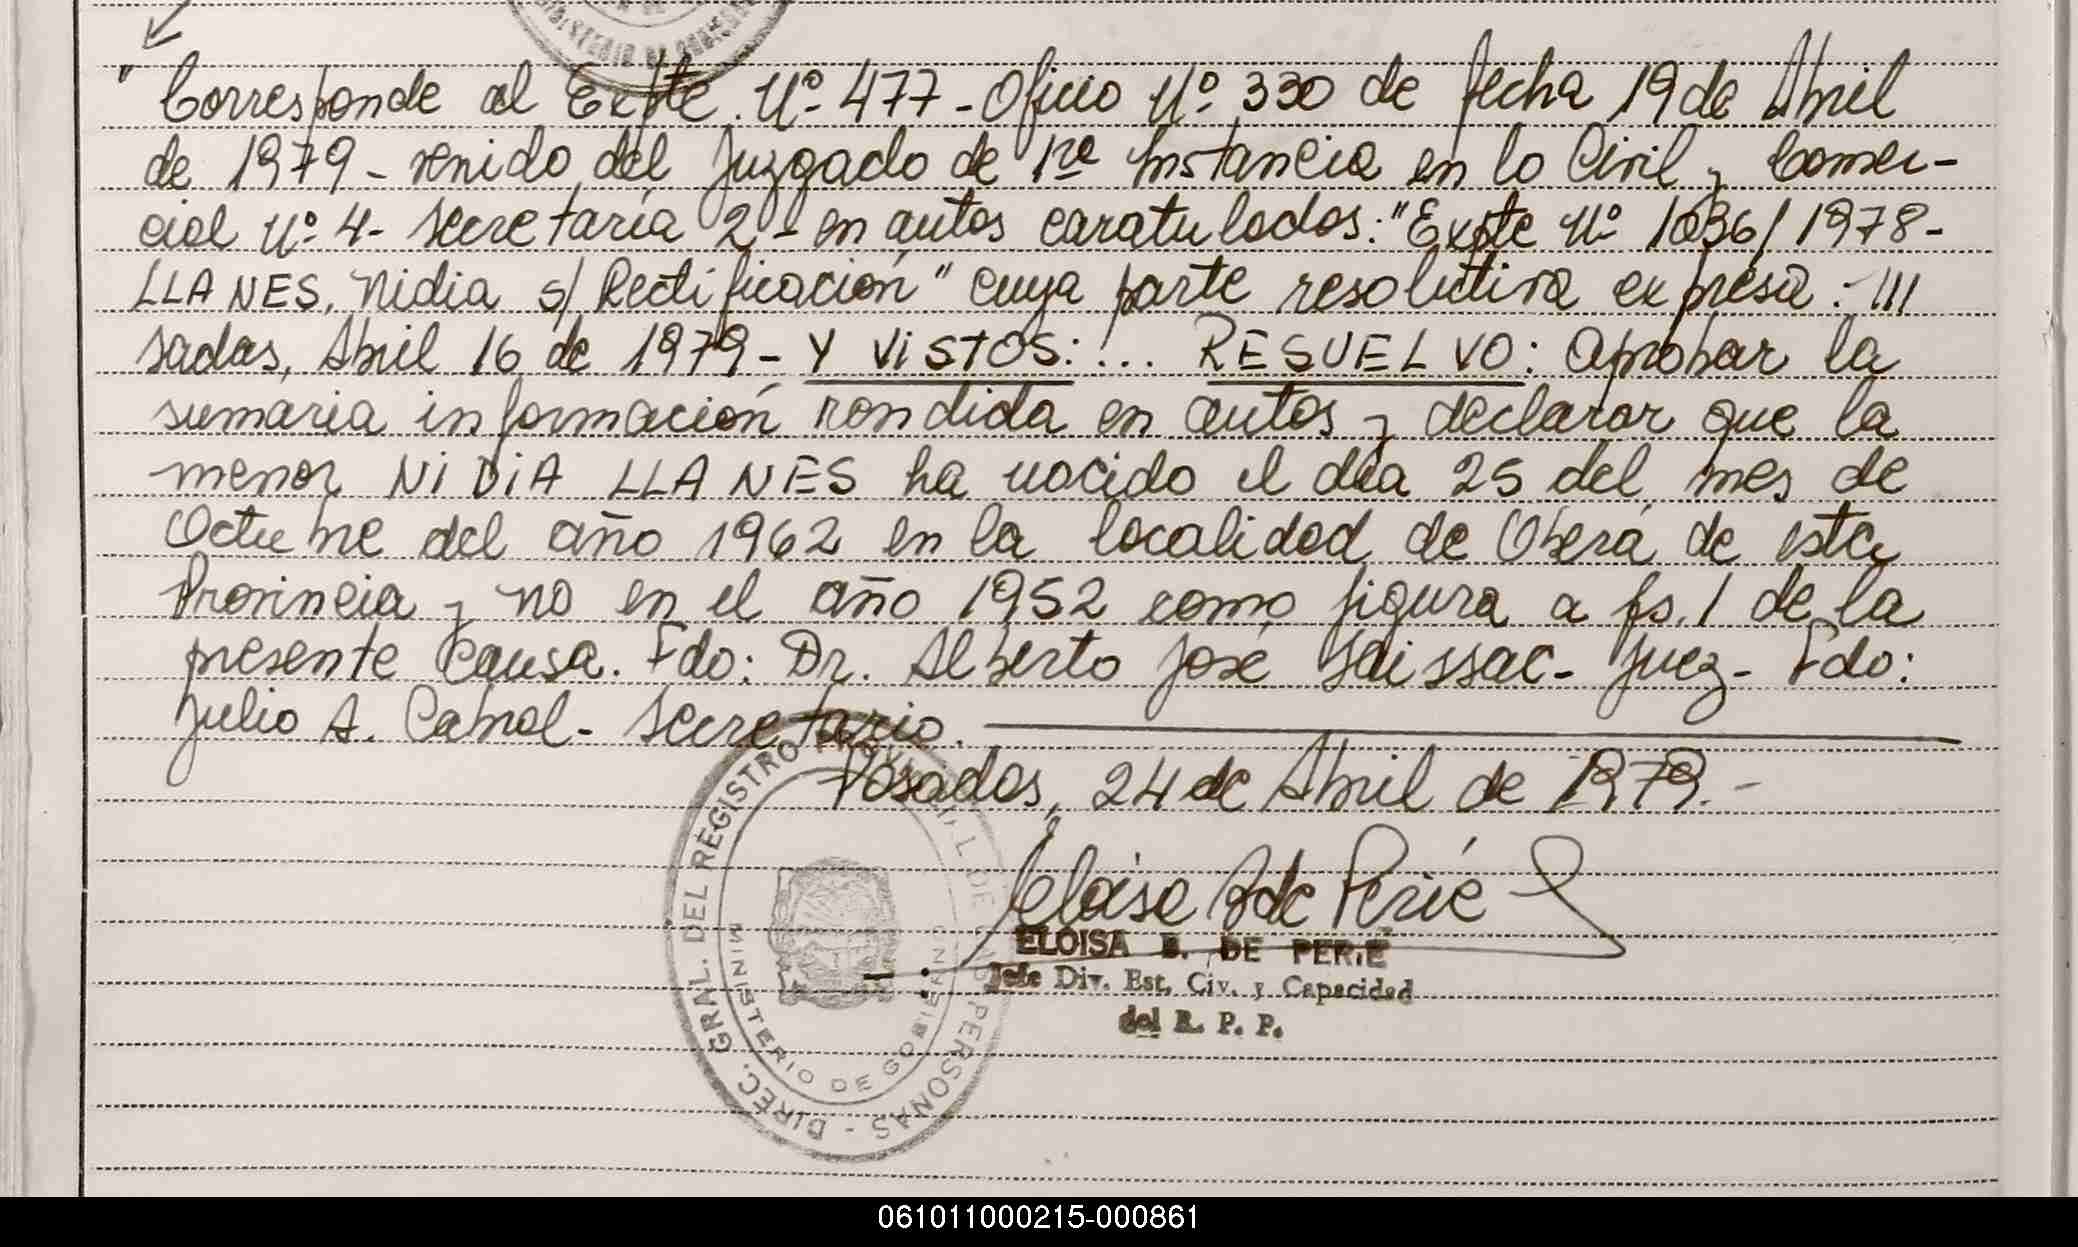 " Corresponde al Expte. Nº 477 - Oficio Nº 330 de fecha 19 de Abril
de 1979 - venido del Juzgado de 1ra Instancia en lo Civil y Comer-
cial Nº 4 - Secretaría 2 - en autos caratulados: "Expte Nº 1036/1978 -
LLANES, Nidia s/ Rectificación" cuya parte resolutiva expresa: - ///
sadas, Abril 16 de 1979 - Y ViSTOS: !... RESUELVO: Aprobar la
sumaria información rondida en autos y declarar que la
menor NiDiA LLANES ha nacido el día 25 del mes de
Octubre del año 1962 en la localidad de Oberá de esta
Provincia y no en el año 1952 como figura a fs. 1 de la
presente causa. Fdo: Dr. Alberto José - Juez - Fdo:
Julio A. Cabral - Secretario.
Posadas, 24 de Abril de 1979. -
Eloisa B de Perié
ELOISA B. DE PERIE
Jefe Div. Est. Civ. y Capacidad
del R. P. P.
DIREC. GRAL. DEL REGISTRO DE PERSONAS -
MINISTERIO DE GOBIERNO
061011000215-000861